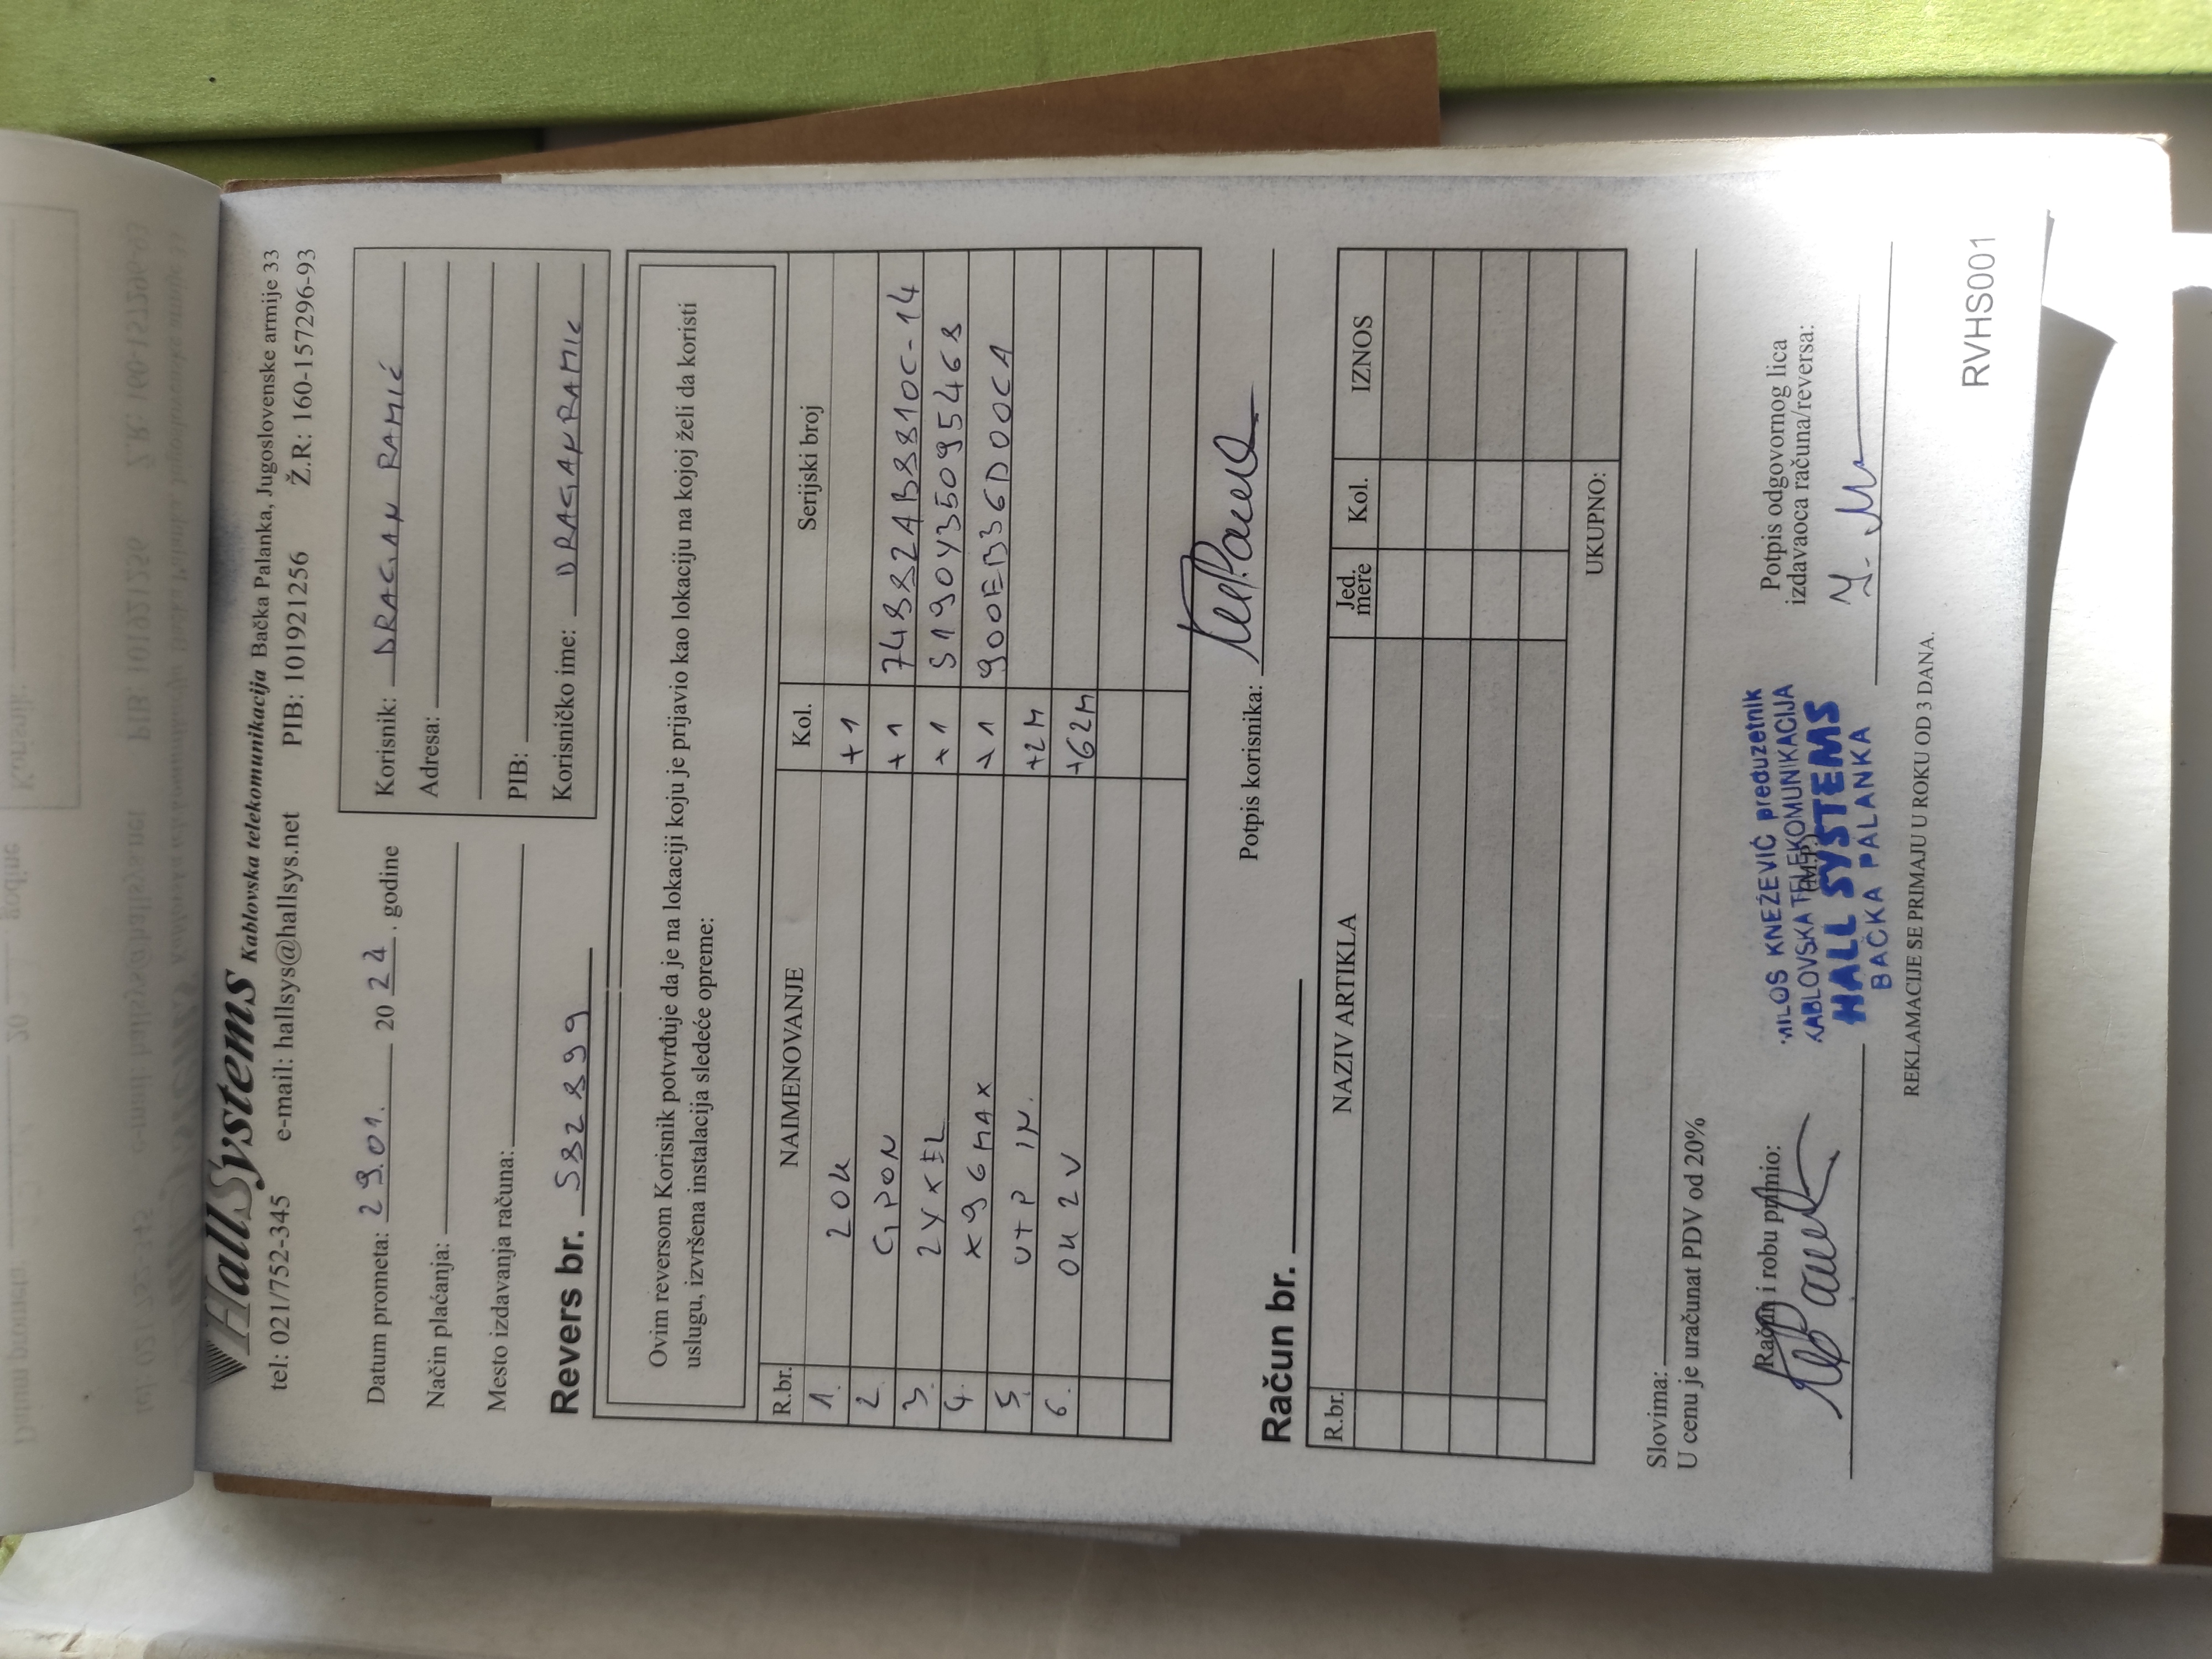 HallSystems Kablovska telekomunikacija Bačka Palanka, Jugoslovenske armije 33
tel: 021/752-345 e-mail: hallsys@hallsys.net PIB: 101921256 Ž.R: 160-157296-93
Datum prometa: 29.01. 2024. godine
Način plaćanja:
Mesto izdavanja računa:
Korisnik: DRAGAN RAMIĆ
Adresa:
PIB:
Korisničko ime: DRAGANRAMIC
Revers br. 582899
Ovim reversom Korisnik potvrđuje da je na lokaciji koju je prijavio kao lokaciju na kojoj želi da koristi
uslugu, izvršena instalacija sledeće opreme:
R.br. NAIMENOVANJE Kol. Serijski broj
1. ZOK +1
2. GPON +1 748824B8810C-14
3. ZYXEL +1 S190Y35095468
4. X96MAX +1 900EB36D00CA
5. UTP IN. +2M
6. OK 2V +62M
Potpis korisnika:
Račun br.
R.br. NAZIV ARTIKLA Jed. mere Kol. IZNOS
UKUPNO:
Slovima:
U cenu je uračunat PDV od 20%
Račun i robu primio:
(M.P.)
MILOS KNEŽEVIĆ preduzetnik
KABLOVSKA TELEKOMUNIKACIJA
HALL SYSTEMS
BAČKA PALANKA
Potpis odgovornog lica
izdavaoca računa/reversa:
REKLAMACIJE SE PRIMAJU U ROKU OD 3 DANA.
RVHS001